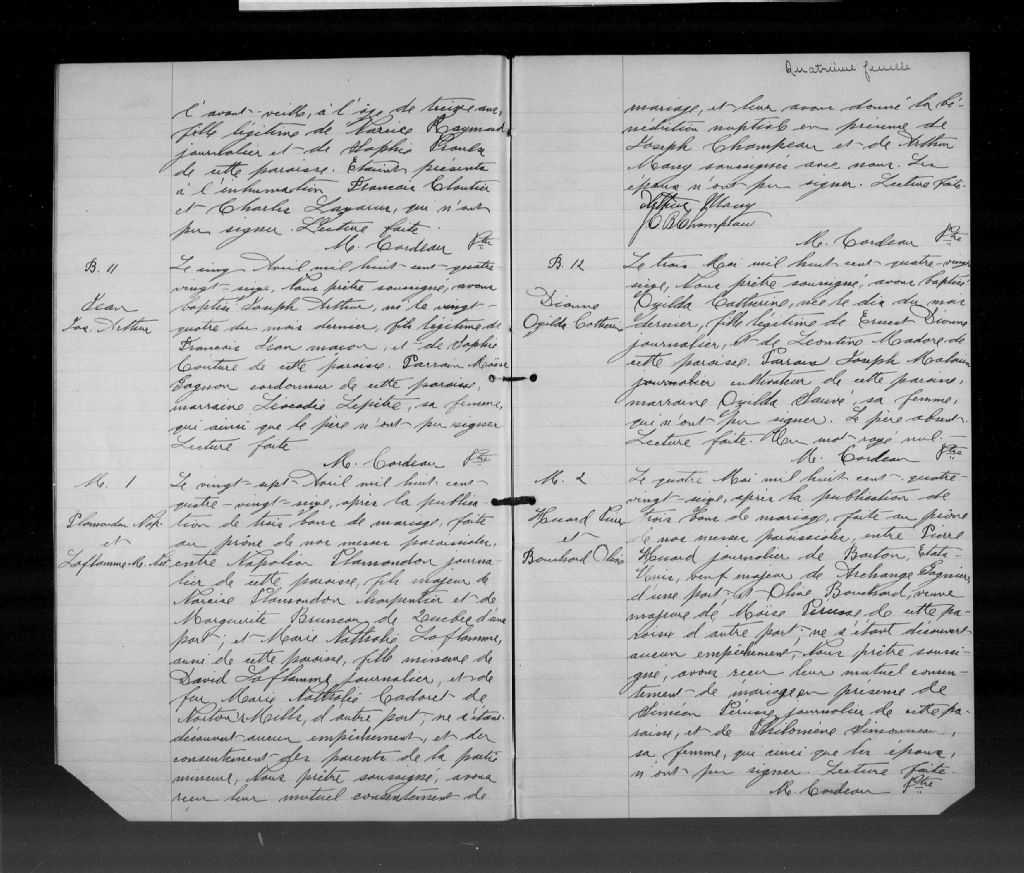 l'avant-veille, à l'âge de treize ans,
fille légitime de Narcice Raymond
journalier et de Sophie
de cette paroisse. Etaient présents
à l'inhumation Francois Cloutier
et Charles qui n'ont
pu signer. Lecture faite.
M. Cordeau Ptre
B. 11
Jean
Jos. Arthur
Le cinq Avril mil huit-cent-quatre
vingt-seize, Nous prêtre soussigné, avons
baptisé Joseph Arthur, né le vingt-
quatre du mois dernier, fils légitime de
Francois Jean maçon, et de Sophie
Couture de cette paroisse. Parrain Moïse
Gagnon cordonnier de cette paroisse,
marraine Léocadie Lepitre, sa femme,
qui ainsi que le père n'ont pu signer
Lecture faite
M. Cordeau Ptre
M. 1
Plamondon Nap.
et
Laflamme M. Nat.
Le vingt-sept Avril mil huit cent-
quatre-vingt-seize, après la publica-
tion de trois bans de mariage, faite
au prône de nos messes paroissiales,
entre Napoléon Plamondon journa-
lier de cette paroisse, fils majeur de
Narcise Plamondon charpentier et de
Marguerite Bruneau, de Québec d'une
part; et Marie Nathalie Laflamme,
aussi de cette paroisse, fille mineure de
David Laflamme journalier, et de
feu Marie Nathalie Cadoret de
Norton Mills, d'autre part, ne s'étant
découvert aucun empêchement, et du
consentement des parents de la partie
mineure, Nous prêtre soussigné, avons
reçu leur mutuel consentement de
Quatrième feuille
mariage, et leur avons donné la bé-
nédiction nuptiale en présence de
Joseph Champeau et de Arthur
Many soussignés avec nous. Les
époux n'ont pu signer. Lecture faite.
Arthur Many
M. Cordeau Ptre
B. 12
Dionne
Ozilda Catherine
Le trois Mai mil huit-cent-quatre-vingt
seize, Nous prêtre soussigné, avons baptisé
Ozilda Catherine, née le dix du mois
dernier, fille légitime de Ernest Dionne
journalier, et de Léontine Madore de
cette paroisse. Parrain Joseph
journalier cultivateur de cette paroisse,
marraine Ozilda Sauvé, sa femme,
qui n'ont pu signer. Le père absent.
Lecture faite. Un mot rayé nul.
M. Cordeau Ptre
M. 2
Huard Pierre
et
Bouchard Olive
Le quatre Mai mil huit cent-quatre-
vingt-seize, après la publication de
trois bans de mariage, faite au prône
de nos messes paroissiales, entre Pierre
Huard journalier de Barton, Etats-
Unis, veuf majeur de Archange Gagnier,
d'une part et Olive Bouchard, veuve
majeure de Moïse Perusse de cette pa-
roisse d'autre part, ne s'étant découvert
aucun empêchement, Nous prêtre soussi-
gné, avons reçu leur mutuel consen-
tement de mariage en présence de
Siméon Pérusse journalier de cette pa-
roisse, et de Philomène
sa femme, qui ainsi que les époux,
n'ont pu signer. Lecture faite.
M. Cordeau Ptre